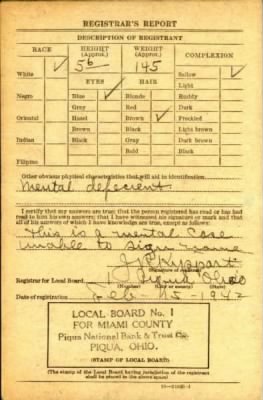 REGISTRAR'S REPORT
DESCRIPTION OF REGISTRANT
RACE
HEIGHT
(Approx.)
WEIGHT
(Approx.)
COMPLEXION
White
5 6
145
Sallow
Light
EYES
HAIR
Negro
Blue
Blonde
Ruddy
Gray
Red
Dark
Oriental
Hazel
Brown
Freckled
Brown
Black
Light brown
Indian
Black
Gray
Dark brown
Bald
Black
Filipino
Other obvious physical characteristics that will aid in identification
mental deficient
I certify that my answers are true; that the person registered has read or has had
read to him his own answers; that I have witnessed his signature or mark and that
all of his answers of which I have knowledge are true, except as follows:
This is a mental Case
unable to sign name
(Signature of registrar)
Registrar for Local Board 1 Piqua Ohio
(Number) (City or county) (State)
Date of registration Feb - 15 - 1942
LOCAL BOARD No. 1
FOR MIAMI COUNTY
Piqua National Bank & Trust Co.
PIQUA, OHIO.
(STAMP OF LOCAL BOARD)
(The stamp of the Local Board having jurisdiction of the registrant
shall be placed in the above space.)